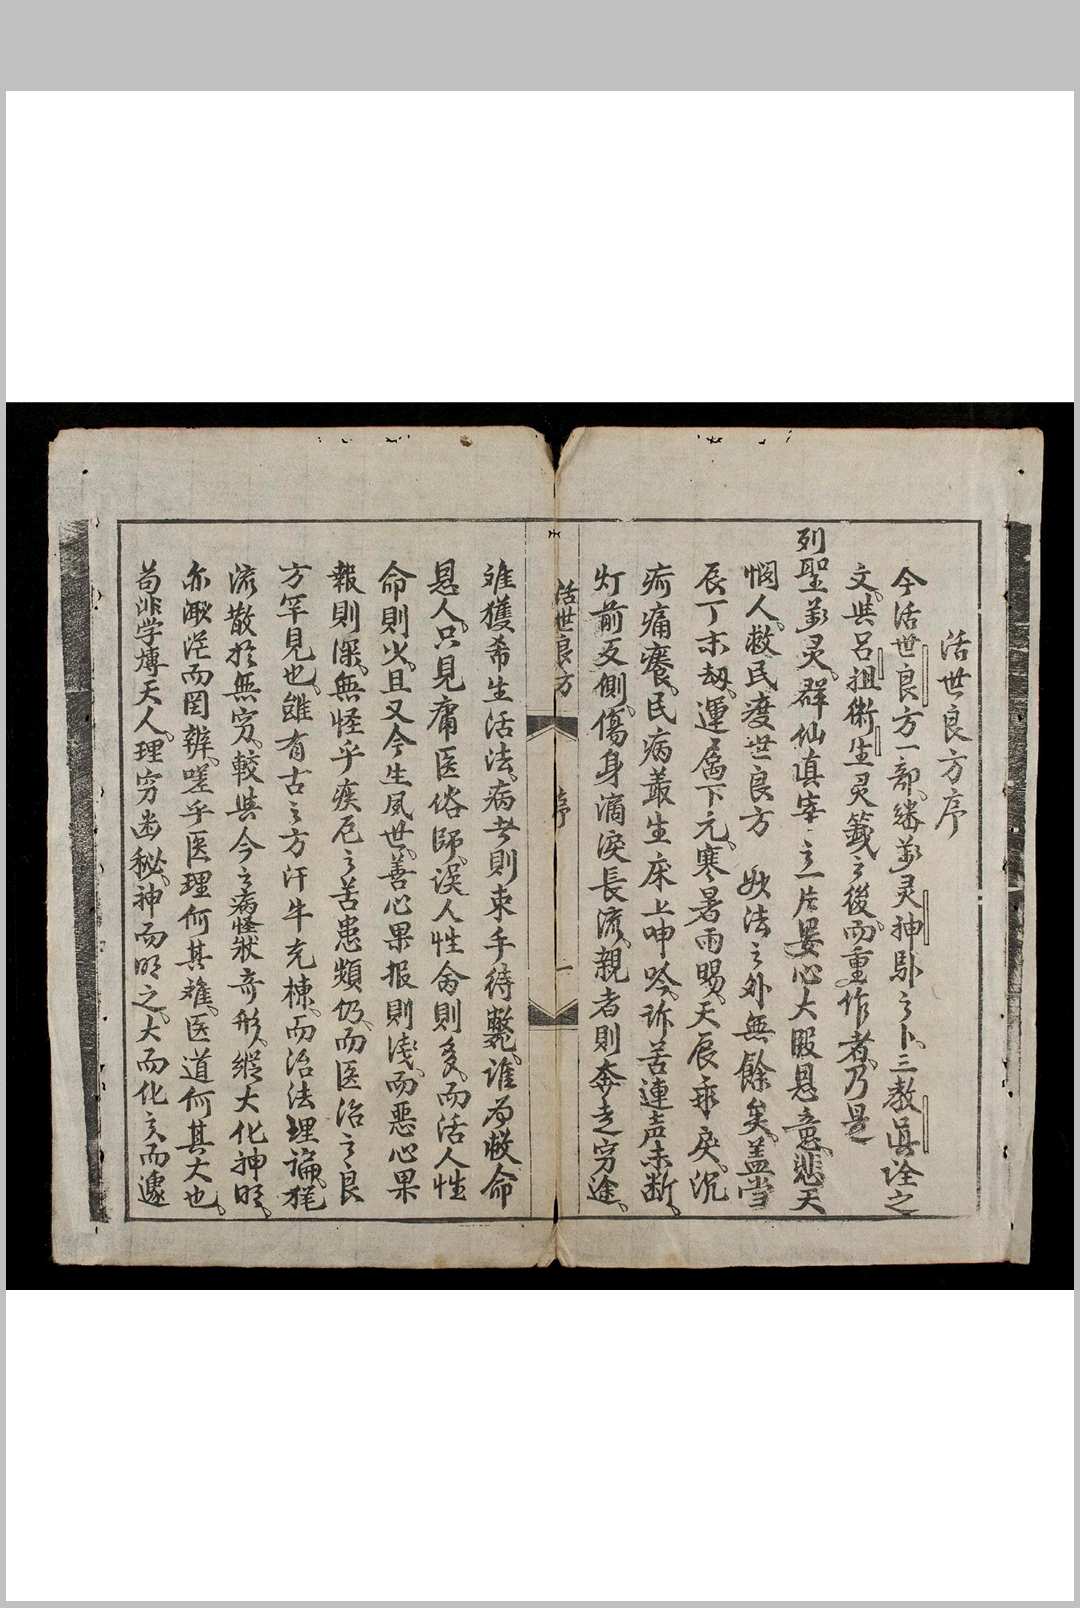 活世良方序
今活世良方一部繙万灵神卧之卜三教眞诠之
文共呂祖衛生灵籤之後而重作者乃是
列聖万灵群仙真宰之一片婆心大暇恩意悲天
憫人救民度世良方 妙法之外無餘矣盖当
辰丁末劫運属下元寒暑雨暘天辰乖戾沉
疴痛癢民病叢生床上呻吟诉苦連声未断
灯前反側傷身滴淚長流親者則奔走穷途
难獲希生活法病者則束手待斃谁为救命
恩人只見庸医俗師误人性命則多而活人性
命則少且又今生夙世善心果报則浅而惡心果
報則深無怪乎疾厄之苦患頻仍而医治之良
方罕見也雖有古之方汗牛充棟而治法理論
流散於無穷較共今之病怪狀奇形縱大化神明
亦渺茫而罔辨嗟乎医理何其难医道何其大也
苟非学博天人理穷幽秘神而明之大而化之而遽
活世良方 序 一